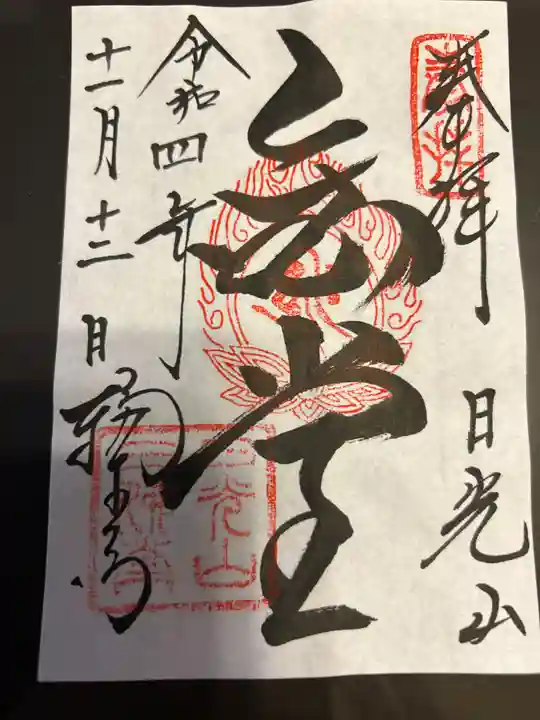 奉拝 日光山
堂
令和四年
十一月十二日
輪王寺
日光山